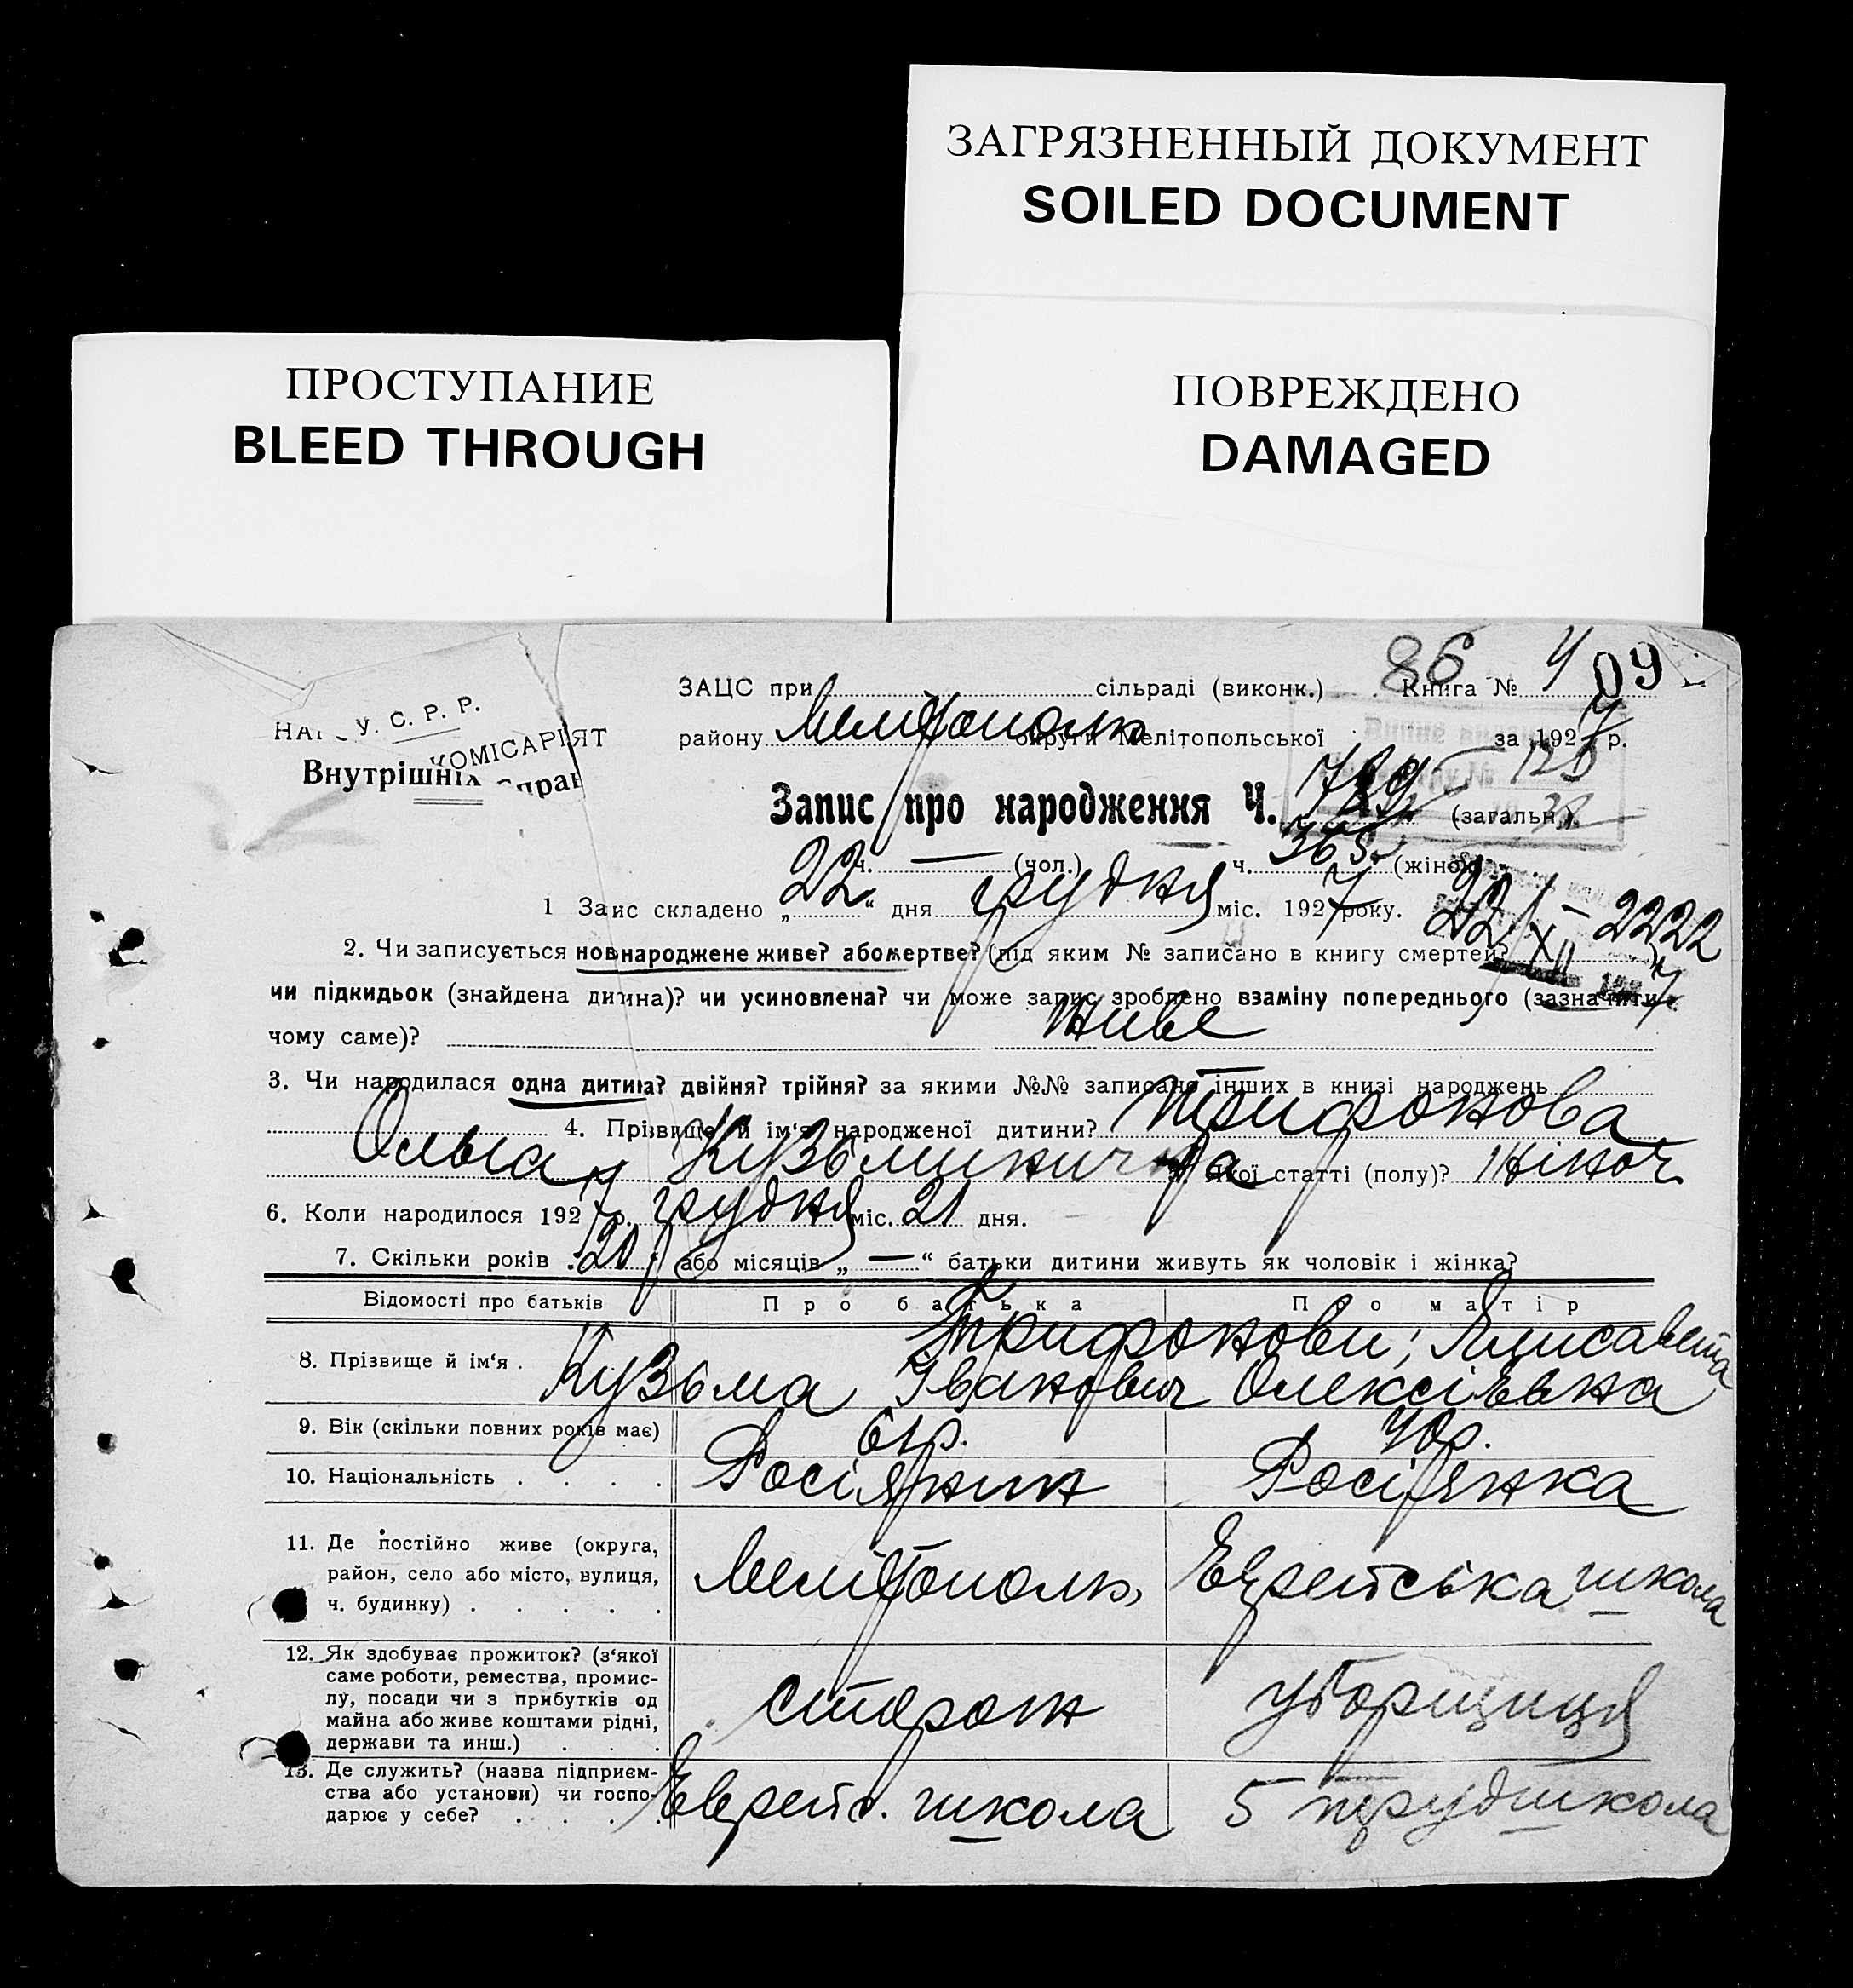 ЗАГРЯЗНЕННЫЙ ДОКУМЕНТ
SOILED DOCUMENT
ПРОСТУПАНИЕ
BLEED THROUGH
ПОВРЕЖДЕНО
DAMAGED
86 4 09
ЗАЦС при сільраді (виконк.) Книга №
У. С. Р. Р.
КОМІСАРІЯТ
Внутрішніх Справ
району Мелітополь округи Мелітопольської за 1927 р.
Запис про народження Ч. 789 (загальн.)
ч. — (чол.) ч. 365. (жіноч.)
1 Запис складено „22“ дня грудня міс. 1927 року. 22/XII – 2222
2. Чи записується новнароджене живе? або мертве? (під яким № записано в книгу смертей?
чи підкидьок (знайдена дитина)? чи усиновлена? чи може запис зроблено взаміну попереднього (зазначити
чому саме)? Живе
3. Чи народилася одна дитина? двійня? трійня? за якими №№ записано інших в книзі народжень
4. Прізвище й ім‘я народженої дитини? Трифонова
Ольга Кузьминична 5. Якої статті (полу)? жіноч.
6. Коли народилося 1927 р. грудня міс. 21 дня.
7. Скільки років „20“ або місяців „—“ батьки дитини живуть як чоловік і жінка?
Відомості про батьків Про батька Про матір
8. Прізвище й ім‘я . Трифонови; Лисавета
Кузьма Іванович Олексіївна
9. Вік (скільки повних років має) 61р. 40р.
10. Національність . . . . Росіянин Росіянка
11. Де постійно живе (округа,
район, село або місто, вулиця,
ч. будинку) . . . . . Мелітополь, Еврейська школа
12. Як здобуває прожиток? (з‘якої
саме роботи, ремества, промис-
лу, посади чи з прибутків од
майна або живе коштами рідні,
держави та инш.) . . . сторож уборщиця
13. Де служить? (назва підприєм-
ства або установи) чи госпо-
дарює у себе? . . . . Еврейс. школа 5 трудшкола